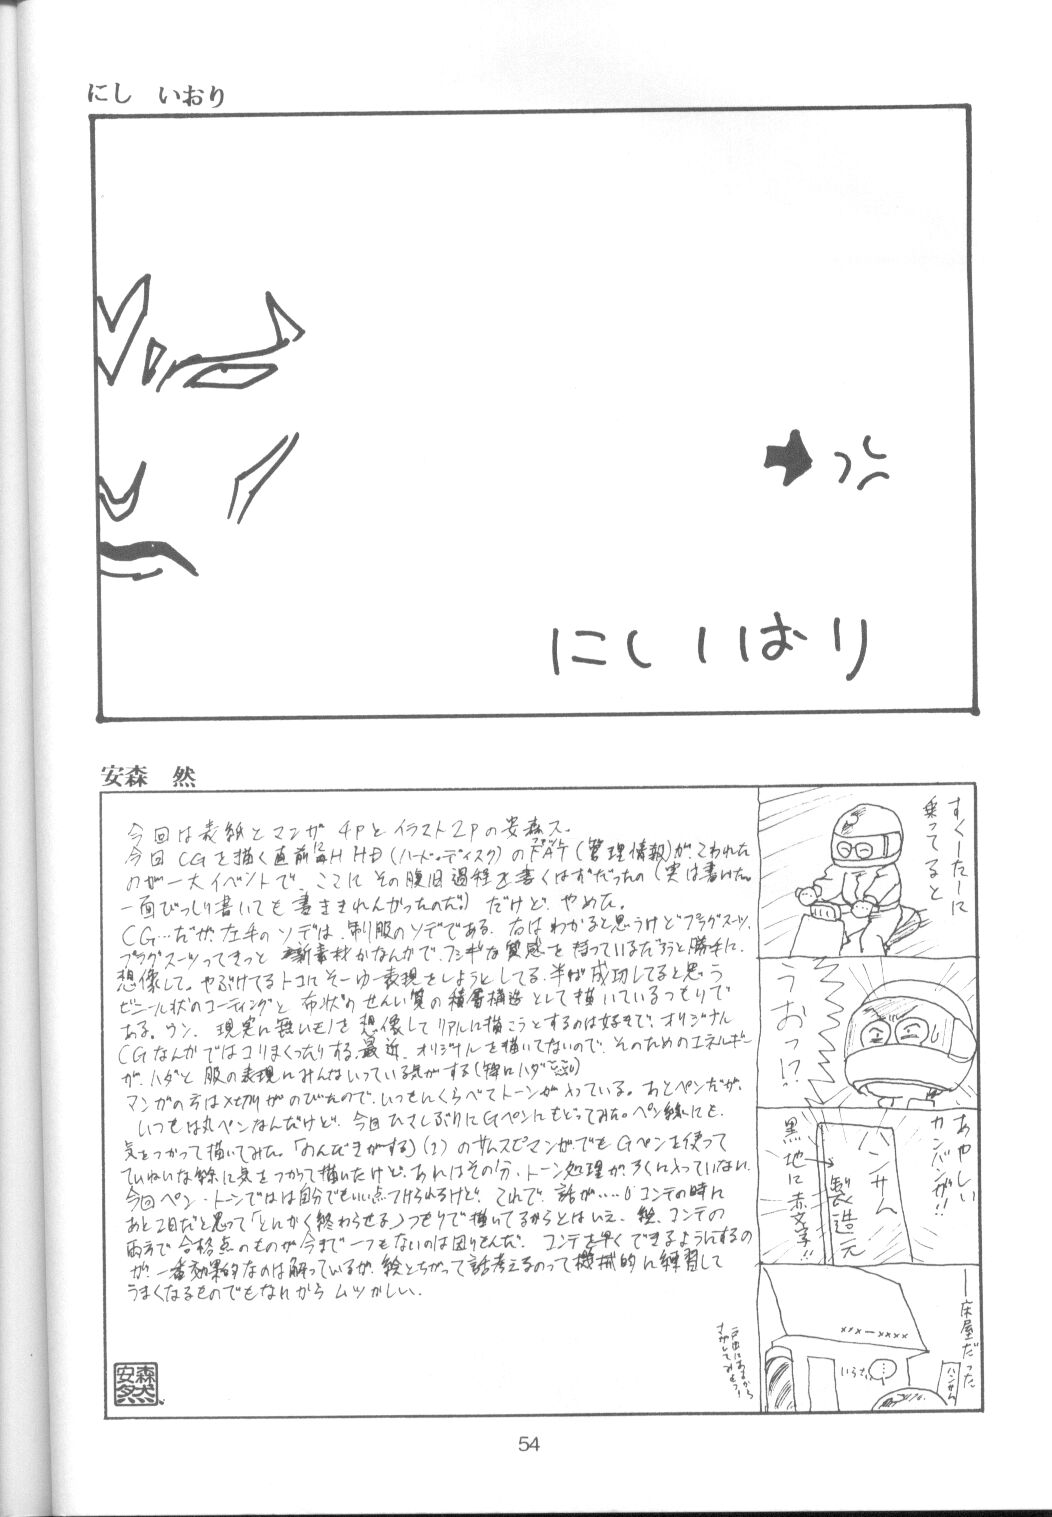 にし いおり
にしいおり
安森 然
今回は表紙とマンガ4Pとイラスト2Pの安森ス。
今回CGを描く直前にHD(ハード・ディスク)のFAT(管理情報)がこわれた
のが一大イベントで、ここにその復旧過程を書くはずだったの(実は書けた。
一面びっしり書いても書ききれんかったのだ。)だけど、やめた。
CG…だが、左手のソデは、制服のソデである。右はわかると思うけどプラグスーツ、
プラグスーツってきっと新素材かなんかで、フシギな質感を持っているだろうと勝手に
想像して。やぶけてるトコにそーゆー表現をしようとしてる。半ば成功してると思う
ビニール状のコーティングと布状のせんい質の積層構造として描いているつもりで
ある。ウン、現実に無いモノを想像してリアルに描こうとするのは好きで、オリジナル
CGなんかではコリまくったりする。最近、オリジナルを描いてないので、そのためのエネルギー
が、ハダと服の表現にみんないっている気がする(特にハダ
マンガの方は〆切りがのびたので、いつもにくらべてトーンが入っている。あとペンだが、
いつもは丸ペンなんだけど、今回ひさしぶりにGペンにもどってみた。ペン線にも、
気をつかって描いてみた。「のんだきがする」(?)のサムスピマンガでもGペンを使って
ていねいな線に気をつかって描いたけど、あれはその分、トーン処理がろくに入っていない。
今回ペン・トーンでは自分でもいい点つけられるけど、これで、話が……コンテの時に
あと2日だと思って「とにかく終わらせる」つもりで描いてるからとはいえ、絵、コンテの
両方で合格点のものが今まで一つもないのは困りもんだ。コンテを早くできるようにするの
が、一番効果的なのは解っているが、絵とちがって話考えるのって機械的に練習して
うまくなるものでもないからムツかしい。
安森
然
すくーたーに
乗ってると
うおっ!?
あやしい
カンバンが!!
ハンサム
製造元
黒地に赤文字!!
―床屋だった
×××-××××
いらさい
ハンサム
さがしてみよう!
54